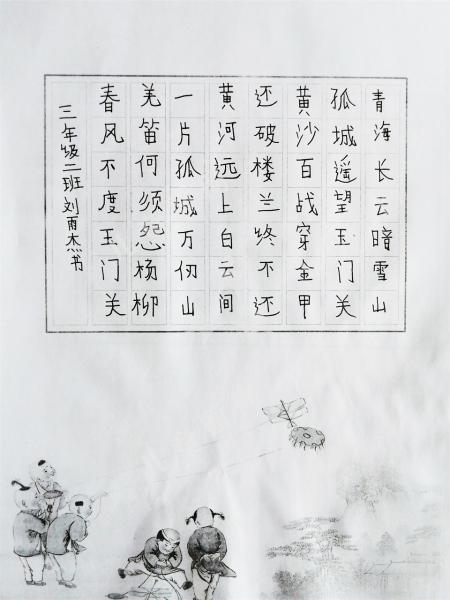 青海长云暗雪山
孤城遥望玉门关
黄沙百战穿金甲
还破楼兰终不还
黄河远上白云间
一片孤城万仞山
羌笛何须怨杨柳
春风不度玉门关
三年级二班刘雨杰书